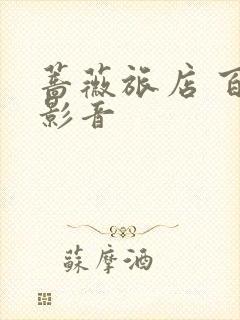 蔷薇旅店 百
影音
蘇摩酒